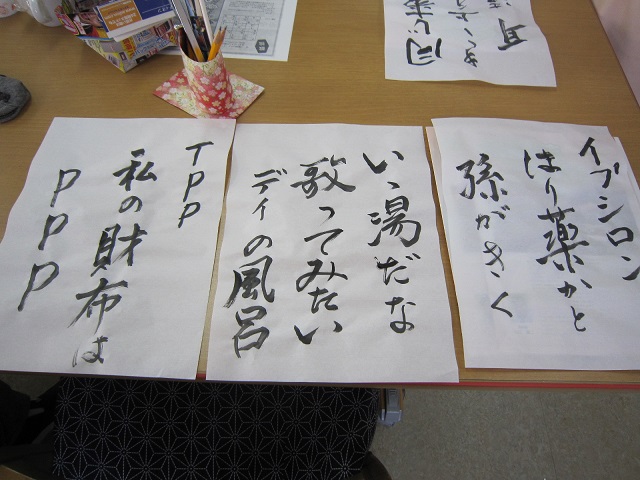 イプシロン
はり薬かと
孫がきく
いゝ湯だな
歌ってみたい
ディの風呂
TPP
私の財布は
PPP